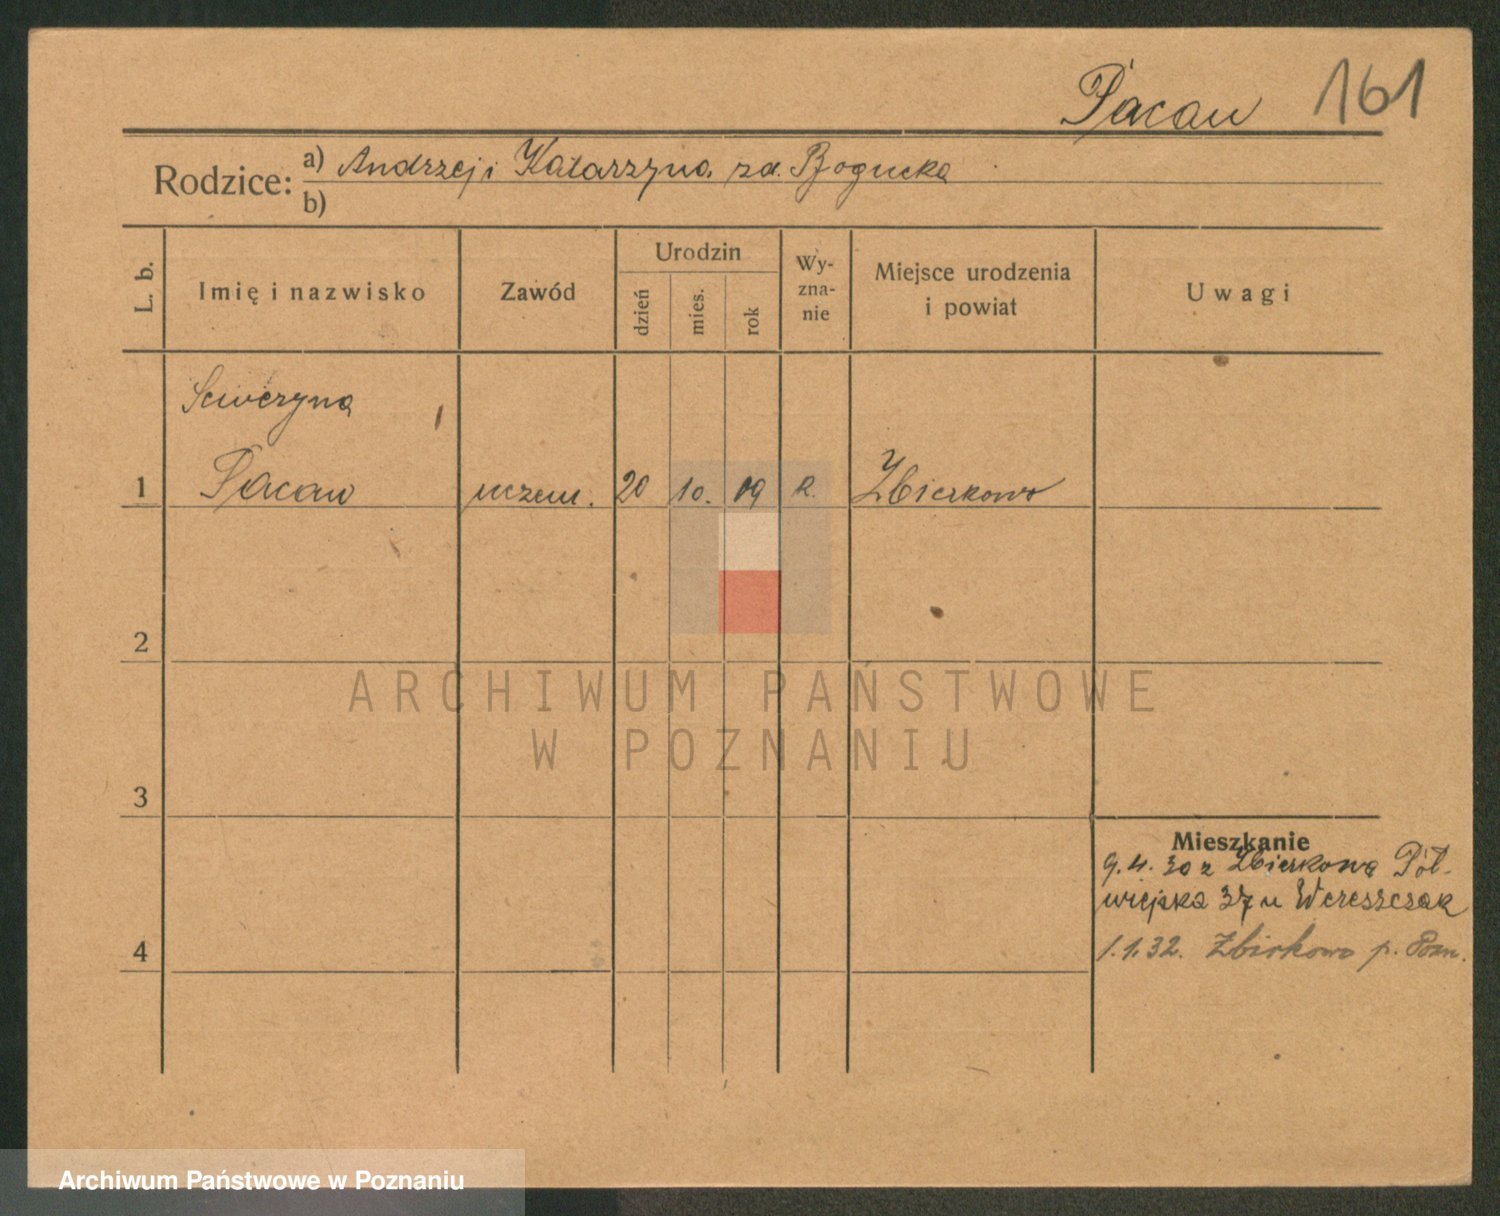 Pacan 161
Rodzice: a) Andrzej i Katarzyna zd. Bogucka
b)
L. b. Imię i nazwisko Zawód Urodzin dzień mies. rok Wyznanie Miejsce urodzenia i powiat Uwagi
Seweryna
1 Pacan uczen. 20 10. 09 R. Zbierkowo
2
ARCHIWUM PAŃSTWOWE
W POZNANIU
3
Mieszkanie
9.4.30 z Zbierkowa Pół-
wiejska 37 u Wereszczak
4 1.1.32. Zbierkowo p. Pozn.
Archiwum Państwowe w Poznaniu